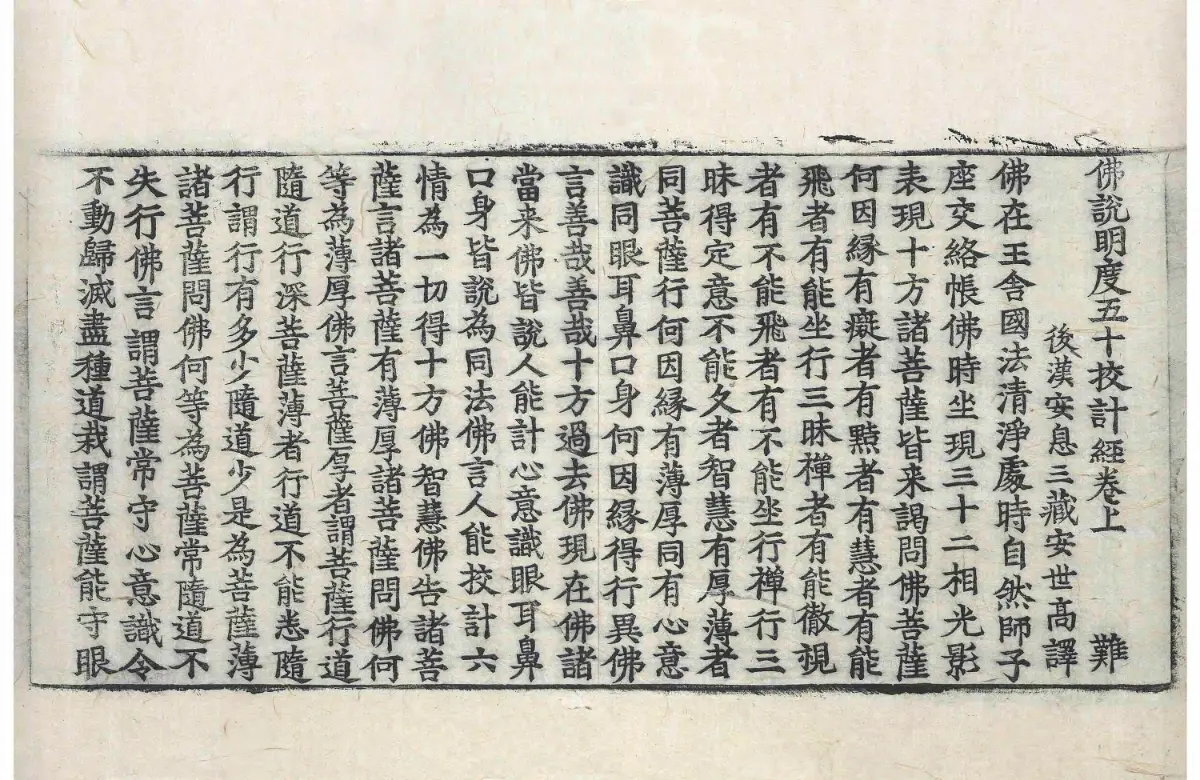 佛說明度五十挍計經卷上 難
後漢安息三藏安世高譯
佛在王舍國法清淨處時自然師子
座交絡帳佛時坐現三十二相光影
表現十方諸菩薩皆来謁問佛菩薩
何因緣有癡者有黠者有慧者有能
飛者有能坐行三昧禪者有能徹視
者有不能飛者有不能坐行禪行三
昧得定意不能久者智慧有厚薄者
同菩薩行何因緣有薄厚同有心意
識同眼耳鼻口身何因緣得行異佛
言善哉善哉十方過去佛現在佛諸
當来佛皆說人能計心意識眼耳鼻
口身皆說為同法佛言人能挍計六
情為一切得十方佛智慧佛告諸菩
薩言諸菩薩有薄厚諸菩薩問佛何
等為薄厚佛言菩薩厚者謂菩薩行道
隨道行深菩薩薄者行道不能悉隨
行謂行有多少隨道少是為菩薩薄
諸菩薩問佛何等為菩薩常隨道不
失行佛言謂菩薩常守心意識令
不動歸滅盡種道栽謂菩薩能守眼